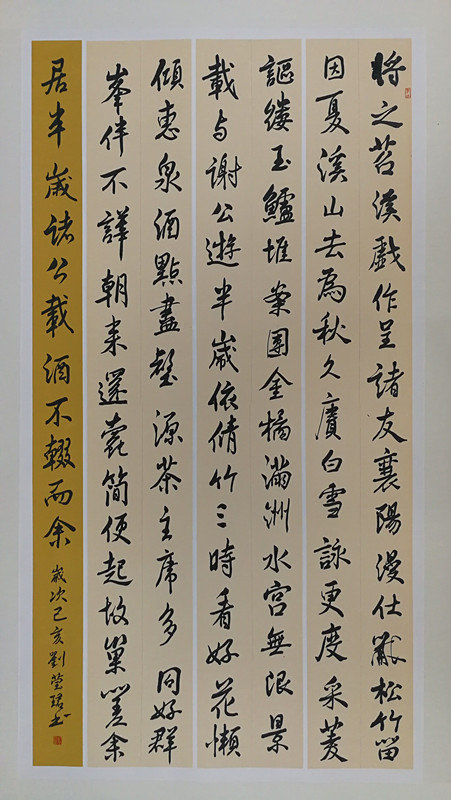 將之苕溪戲作呈諸友襄陽漫仕黻松竹留
因夏溪山去為秋久賡白雪詠更度采菱
謳縷玉鱸堆案團金橘滿洲水宮無限景
載与謝公遊半歲依脩竹三時看好花懶
傾惠泉酒點盡壑源茶主席多同好群
峯伴不譁朝来還蠹簡便起故巢嗟余
居半歲諸公載酒不輟而余
歲次己亥劉瑩珺书